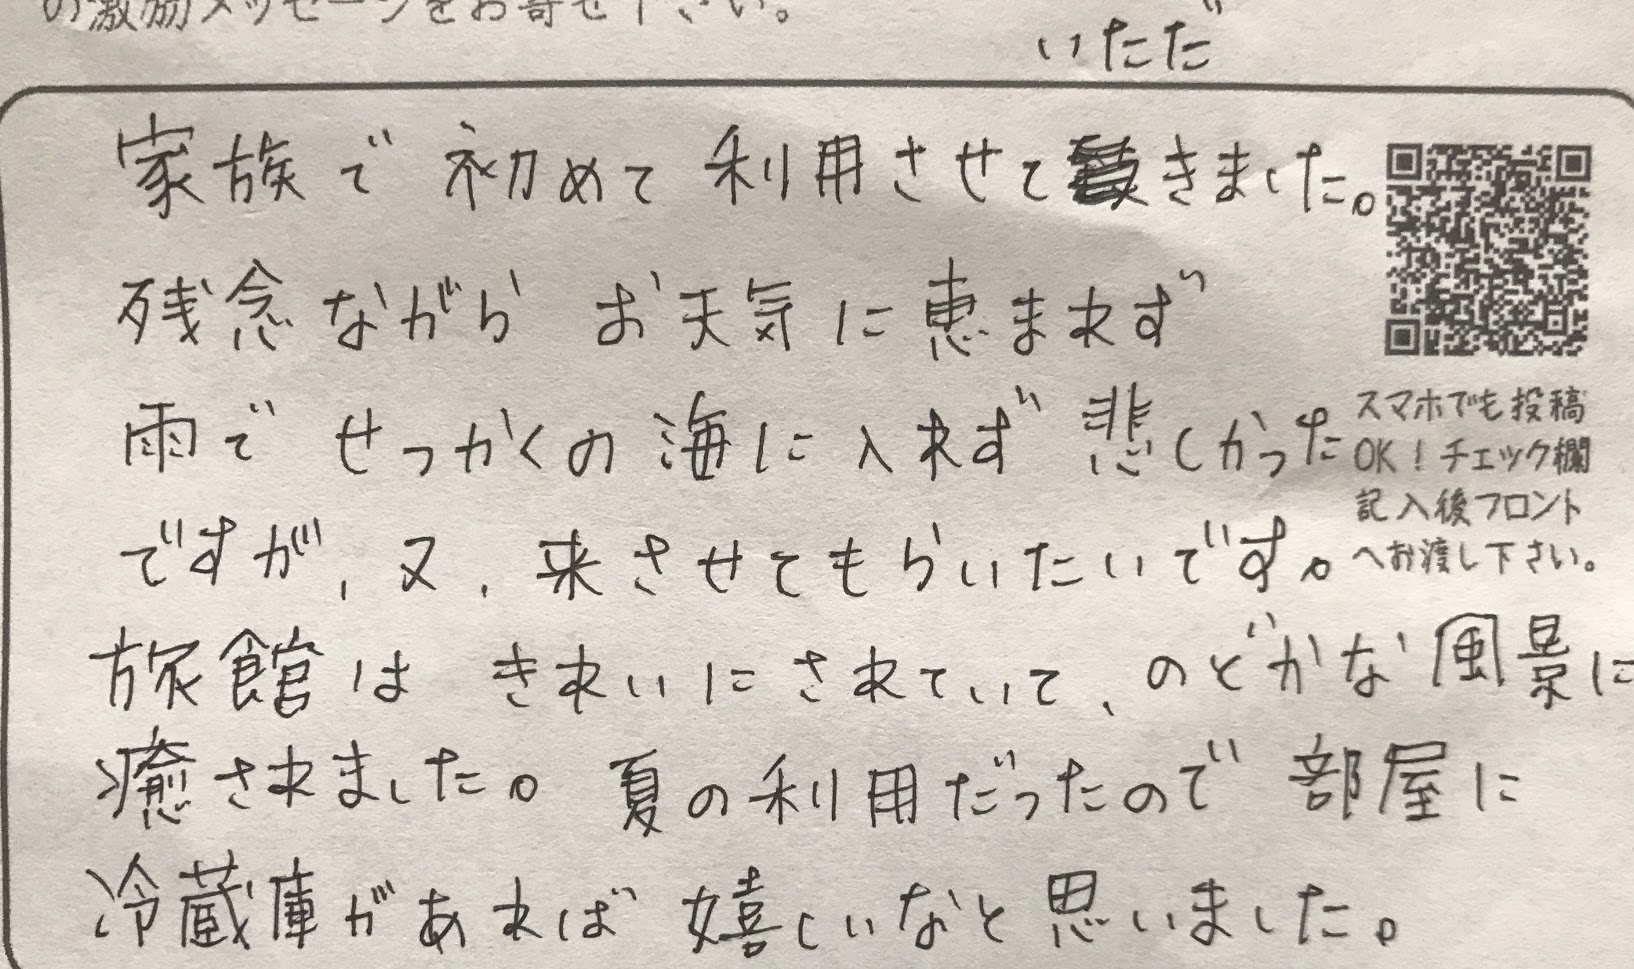 の激励メッセージをお寄せ下さい。
いただ
家族で初めて利用させてきました。
残念ながらお天気に恵まれず
雨でせっかくの海に入れず悲しかった
ですが、又、来させてもらいたいです。
旅館はきれいにされていて、のどかな風景に
癒されました。夏の利用だったので部屋に
冷蔵庫があれば嬉しいなと思いました。
スマホでも投稿
OK！チェック欄
記入後フロント
へお渡し下さい。